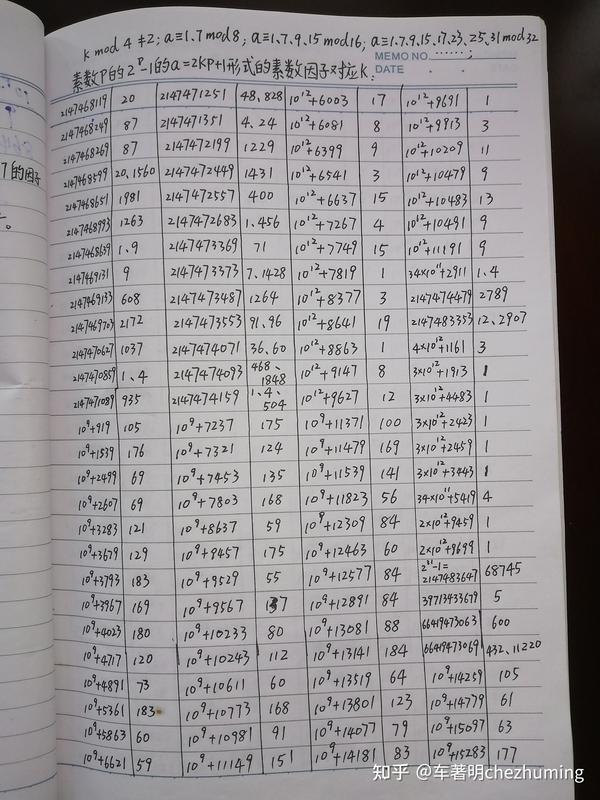 k mod 4 ≠2; a≡1.7 mod 8; a≡1.7.9.15 mod 16; a≡1.7.9.15.17.23.25.31 mod 32
MEMO NO. ……;
素数P的2^P-1的a=2kp+1形式的素数因子对应k:
DATE
2147468119 20 2147471251 48.828 10^12+6003 17 10^12+9691 1
2147468249 87 2147471351 4.24 10^12+6081 8 10^12+9913 3
2147468269 87 2147472199 1229 10^12+6399 9 10^12+10209 11
2147468599 20.1560 2147472449 1431 10^12+6541 3 10^12+10479 9
7的因子
2147468651 1981 2147472557 400 10^12+6637 15 10^12+10483 13
2147468993 1263 2147472683 1.456 10^12+7267 4 10^12+10491 9
2147468659 1.9 2147473369 71 10^12+7749 15 10^12+11191 9
2147469131 9 2147473373 7.1428 10^12+7819 1 34×10^11+2911 1.4
2147469133 608 2147473487 1264 10^12+8377 3 2147474479 2789
2147469703 2172 2147473553 91.96 10^12+8641 19 2147483353 12.2907
2147470627 1037 2147474071 36.60 10^12+8863 1 4×10^12+1161 3
2147470859 1.4 2147474093 468.1848 10^12+9147 8 3×10^12+1913 1
2147471089 935 2147474159 1.4.504 10^12+9627 12 3×10^12+4483 1
10^9+919 105 10^9+7237 175 10^9+11371 100 3×10^12+2423 1
10^9+1539 176 10^9+7321 124 10^9+11479 169 3×10^12+2459 1
10^9+2499 69 10^9+7453 135 10^9+11539 141 3×10^12+3443 1
10^9+2607 69 10^9+7803 168 10^9+11823 56 34×10^11+5419 4
10^9+3283 121 10^9+8637 59 10^9+12309 84 2×10^12+9459 1
10^9+3679 129 10^9+9457 175 10^9+12463 60 2×10^12+9699 1
10^9+3793 183 10^9+9529 55 10^9+12577 84 2^31-1=2147483647 68745
10^9+3967 169 10^9+9567 137 10^9+12891 84 39713433679 5
10^9+4023 180 10^9+10233 80 10^9+13081 88 66419473063 600
10^9+4717 120 10^9+10243 112 10^9+13141 184 66419473069 432.11220
10^9+4891 73 10^9+10611 60 10^9+13519 64 10^9+14259 105
10^9+5361 183 10^9+10773 168 10^9+13801 123 10^9+14779 61
10^9+5863 60 10^9+10981 91 10^9+14077 79 10^9+15097 63
10^9+6621 59 10^9+11149 151 10^9+14181 83 10^9+15283 177
知乎 @车著明chezhuming